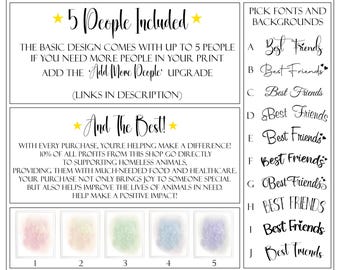 5 People Included
THE BASIC DESIGN COMES WITH UP TO 5 PEOPLE
IF YOU NEED MORE PEOPLE IN YOUR PRINT
ADD THE "Add More People" UPGRADE
(LINKS IN DESCRIPTION)
And The Best!
WITH EVERY PURCHASE, YOU'RE HELPING MAKE A DIFFERENCE!
10% OF ALL PROFITS FROM THIS SHOP GO DIRECTLY
TO SUPPORTING HOMELESS ANIMALS,
PROVIDING THEM WITH MUCH-NEEDED FOOD AND HEALTHCARE.
YOUR PURCHASE NOT ONLY BRINGS JOY TO SOMEONE SPECIAL
BUT ALSO HELPS IMPROVE THE LIVES OF ANIMALS IN NEED.
HELP MAKE A POSITIVE IMPACT!
1 2 3 4 5
PICK FONTS AND
BACKGROUNDS
A Best Friends
B Best Friends
C Best Friends
D Best Friends
E Best Friends
F Best Friends
G Best Friends
H BEST FRIENDS
I Best Friends
J Best Friends